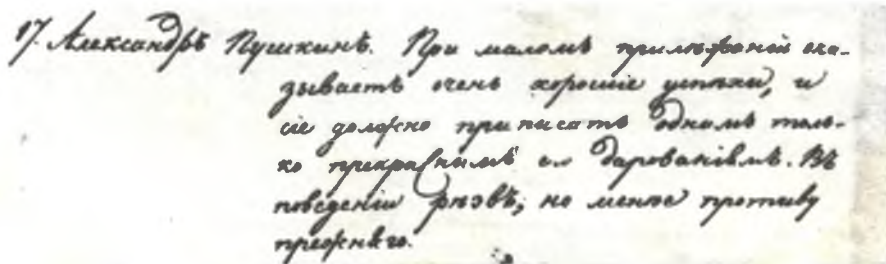 17. Александръ Пушкинъ. При маломъ прилѣжаніи ока-
зываетъ очень хорошіе успѣхи, и
сіе должно приписать однимъ толь-
ко прекраснымъ его дарованіямъ. Въ
поведеніи рѣзвъ, но менѣе противу
прежняго.